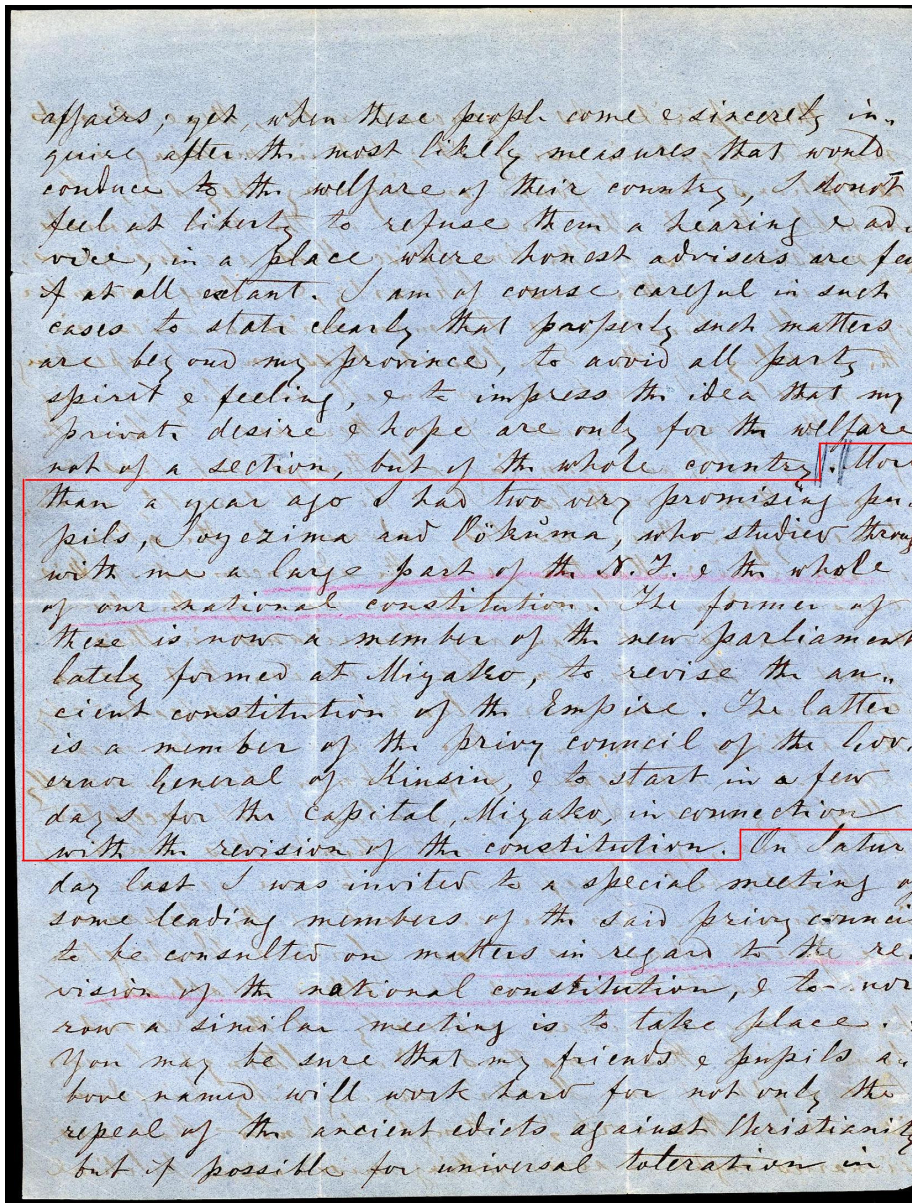 affairs; yet, when these people come & sincerely in-
quire after the most likely measures that would
conduce to the welfare of their country, I donot
feel at liberty to refuse them a hearing & ad-
vice, in a place, where honest advisers are few
if at all extant. I am of course careful in such
cases to state clearly that properly such matters
are beyond my province, to avoid all party
spirit & feeling, & to impress the idea that my
private desire & hope are only for the welfare
not of a section, but of the whole country. More
than a year ago I had two very promising pu-
pils, Soyezima and Oökuma, who studied through
with me a large part of the N.T. & the whole
of our national constitution. The former of
these is now a member of the new parliament
lately formed at Miyako, to revise the an-
cient constitution of the Empire. The latter
is a member of the privy council of the Gov-
ernor General of Kinsin, & to start in a few
days for the capital, Miyako, in connection
with the revision of the constitution. On Satur
day last I was invited to a special meeting of
some leading members of the said privy council
to be consulted on matters in regard to the re-
vision of the national constitution, & to-mor
row a similar meeting is to take place.
You may be sure that my friends & pupils a-
bove named will work hard for not only the
repeal of the ancient edicts against Christianity
but if possible for universal toleration in